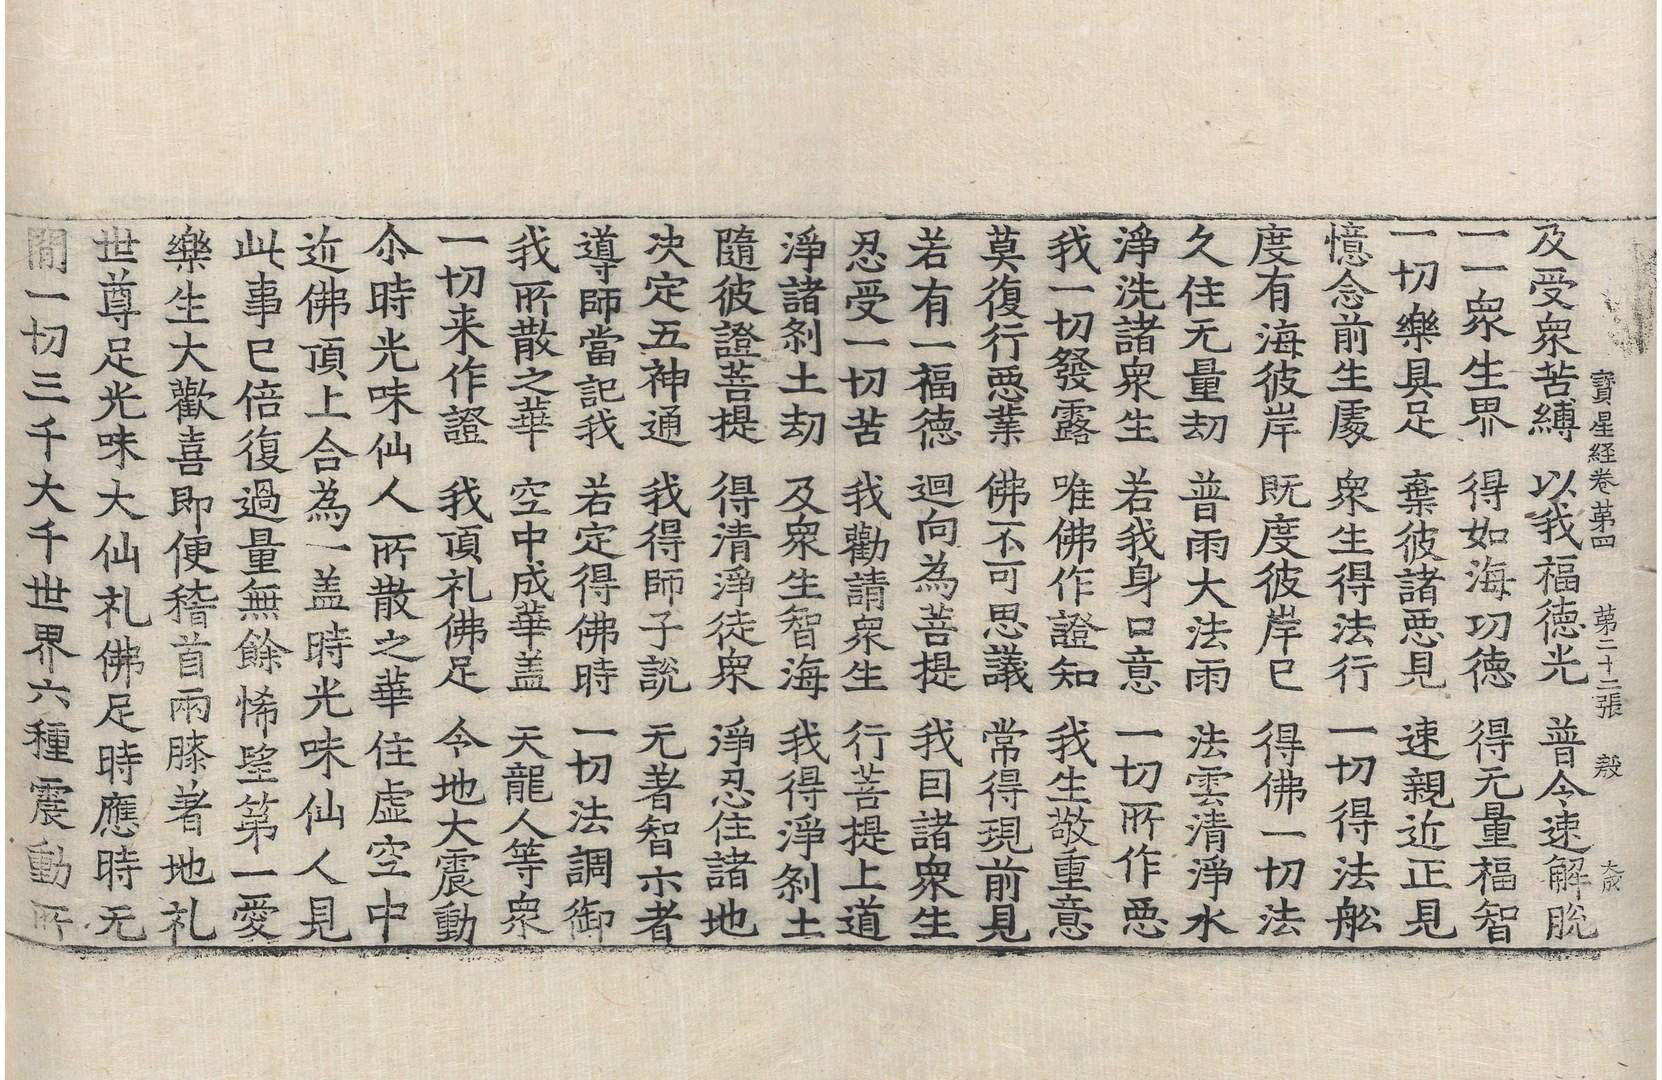 寶星経卷第四 第二十二張 殸 大成
及受衆苦縛 以我福德光 普令速解脫
一一衆生界 得如海功德 得无量福智
一切樂具足 棄彼諸惡見 速親近正見
憶念前生處 衆生得法行 一切得法舩
度有海彼岸 既度彼岸已 得佛一切法
久住无量劫 普雨大法雨 法雲清淨水
淨洗諸衆生 若我身口意 一切所作惡
我一切發露 唯佛作證知 我生敬重意
莫復行惡業 佛不可思議 常得現前見
若有一福德 迴向為菩提 我目諸衆生
忍受一切苦 我勸請衆生 行菩提上道
淨諸刹土劫 及衆生智海 我得淨刹土
隨彼證菩提 得清淨徒衆 淨忍住諸地
决定五神通 我得師子說 无著智示者
導師當記我 若定得佛時 一切法調御
我所散之華 空中成華盖 天龍人等衆
一切来作證 我頂礼佛足 令地大震動
尒時光味仙人所散之華住虚空中
近佛頂上合為一盖時光味仙人見
此事已倍復過量無餘悕望第一愛
樂生大歡喜即便稽首兩膝著地礼
世尊足光味大仙礼佛足時應時无
閒一切三千大千世界六種震動所